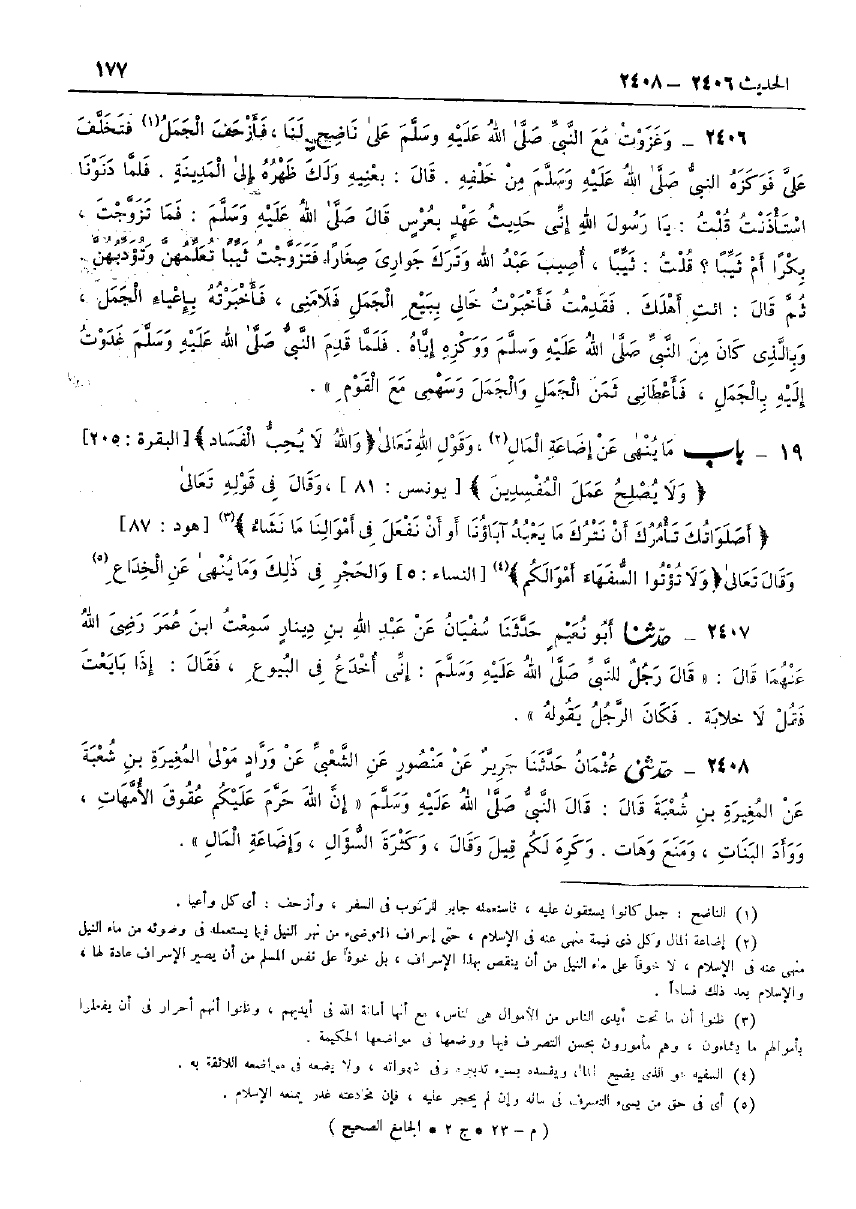 الحديث ٢٤٠٦ – ٢٤٠٨
١٧٧
٢٤٠٦ – وَغَزَوْتُ مَعَ النَّبيِّ صَلَّى اللهُ عَلَيْهِ وَسَلَّمَ عَلَى نَاضِحٍ لَنَا ، فَأَزْحَفَ الْجَمَلُ(١) فَتَخَلَّفَ
عَلَىَّ فَوَكَزَهُ النبيُّ صَلَّى اللهُ عَلَيْهِ وَسَلَّمَ مِنْ خَلْفِهِ . قَالَ : بِعْنِيهِ وَلَكَ ظَهْرُهُ إِلَى الْمَدِينَةِ . فَلَمَّا دَنَوْنَا
اسْتَأْذَنْتُ قُلْتُ : يَا رَسُولَ اللهِ إِنِّى حَدِيثُ عَهْدٍ بِعُرْسٍ قَالَ صَلَّى اللهُ عَلَيْهِ وَسَلَّمَ : فَمَا تَزَوَّجْتَ ،
بِكْرًا أَمْ ثَيِّبًا ؟ قُلْتُ : ثَيِّبًا ، أُصِيبَ عَبْدُ اللهِ وَتَرَكَ جَوارِىَ صِغَارًا. فَتَزَوَّجْتُ ثَيِّبًا تُعَلِّمُهُنَّ وَتُؤَدِّبُهُنَّ .
ثُمَّ قَالَ : ائتِ أَهْلَكَ . فَقَدِمْتُ فَأَخْبَرْتُ خَالِى بِبَيْعِ الْجَمَلِ فَلَامَنِى ، فَأَخْبَرْتُهُ بِإِعْيَاءِ الْجَمَلِ ،
وَبِالَّذِى كَانَ مِنَ النَّبيِّ صَلَّى اللهُ عَلَيْهِ وَسَلَّمَ وَوَكْزِهِ إِيَّاهُ . فَلَمَّا قَدِمَ النَّبيُّ صَلَّى الله عَلَيْهِ وَسَلَّمَ غَدَوْتُ
إِلَيْهِ بِالْجَمَلِ ، فَأَعْطَانِى ثَمَنَ الْجَمَلِ وَالْجَمَلَ وَسَهْمِى مَعَ الْقَوْمِ » .
١٩ – باب مَا يُنْهَى عَنْ إِضَاعَةِ الْمَالِ(٢) ، وَقَوْلِ اللهِ تَعَالَى ﴿ وَاللهُ لَا يُحِبُّ الْفَسَاد ﴾ [البقرة : ٢٠٥]
﴿ وَلَا يُصْلِحُ عَمَلَ الْمُفْسِدِينَ ﴾ [ يونس : ٨١ ] ، وَقَالَ فِى قَوْلِهِ تَعَالَى
﴿ أَصَلَوَاتُكَ تَأْمُرُكَ أَنْ نَتْرُكَ مَا يَعْبُدُ آبَاؤُنَا أو أَنْ نَفْعَلَ فِى أَمْوَالِنَا مَا نَشَاءُ ﴾(٣) [هود : ٨٧]
وَقَالَ تَعَالَى ﴿ وَلَا تُؤْتُوا السُّفَهَاءَ أَمْوَالَكُم ﴾(٤) [النساء : ٥] وَالْحَجْرِ فِى ذٰلِكَ وَمَا يُنْهَى عَنِ الْخِدَاعِ(٥)
٢٤٠٧ – حدّثنا أَبُو نُعَيْمٍ حَدَّثَنَا سُفْيَانُ عَنْ عَبْدِ اللهِ بنِ دِينارٍ سَمِعْتُ ابنَ عُمَرَ رَضِىَ اللهُ
عَنْهُمَا قَالَ : « قَالَ رَجُلٌ للنَّبيِّ صَلَّى اللهُ عَلَيْهِ وَسَلَّمَ : إِنِّى أُخْدَعُ فِى البُيوعِ ، فَقَالَ : إِذَا بَايَعْتَ
فَقُلْ لَا خلابَة . فَكَانَ الرَّجُلُ يَقُولُهُ » .
٢٤٠٨ – حدّثنى عُثْمَانُ حَدَّثَنَا جَرِيرٌ عَنْ مَنْصُورٍ عَنِ الشَّعْبيِّ عَنْ وَرَّادٍ مَوْلَى المُغِيرَةِ بنِ شُعْبَةَ
عَنْ المُغِيرَةِ بنِ شُعْبَةَ قَالَ : قَالَ النَّبيُّ صَلَّى اللهُ عَلَيْهِ وَسَلَّمَ « إِنَّ اللهَ حَرَّمَ عَلَيْكُم عُقُوقَ الأُمَّهَاتِ ،
وَوَأْدَ البَنَاتِ ، وَمَنَعَ وَهَات . وَكَرِهَ لَكُم قِيلَ وَقَالَ ، وَكَثْرَةَ السُّؤَالِ ، وَإِضَاعَةِ الْمَالِ » .
(١) الناضح : جمل كانوا يستقون عليه ، فاستعمله جابر للركوب فى السفر ، وأزحف : أى كل وأعيا .
(٢) إضاعة المال وكل ذى قيمة منهى عنه فى الإسلام ، حتى إسراف المتوضىء من نهر النيل فيما يستعمله فى وضوئه من ماء النيل
منهى عنه فى الإسلام ، لا خوفاً على ماء النيل من أن ينقص بهذا الإسراف ، بل خوفاً على نفس المسلم من أن يصير الإسراف عادة لها ،
والإسلام يعد ذلك فساداً .
(٣) ظنوا أن ما تحت أيدى الناس من الأموال هى للناس، مع أنها أمانة الله فى أيديهم ، وظنوا أنهم أحرار فى أن يفعلوا
بأموالهم ما يشاءون ، وهم مأمورون بحسن التصرف فيها ووضعها فى مواضعها الحكيمة .
(٤) السفيه هو الذى يضيع المال، ويفسده بسوء تدبيره وفى شهواته ، ولا يضعه فى مواضعه اللائقة به .
(٥) أى فى حق من يسىء التصرف فى ماله وإن لم يحجر عليه ، فإن مخادعته غدر يمنعه الإسلام .
( م – ٢٣ * ج ٢ * الجامع الصحيح )